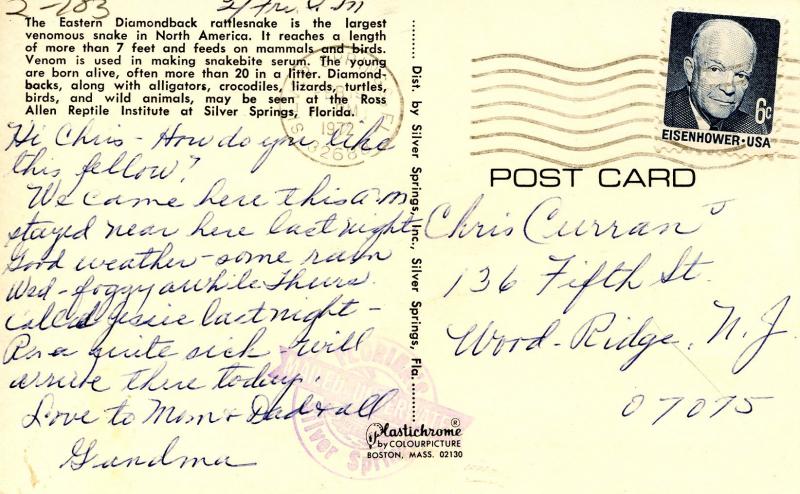 2-183
The Eastern Diamondback rattlesnake is the largest
venomous snake in North America. It reaches a length
of more than 7 feet and feeds on mammals and birds.
Venom is used in making snakebite serum. The young
are born alive, often more than 20 in a litter. Diamond-
backs, along with alligators, crocodiles, lizards, turtles,
birds, and wild animals, may be seen at the Ross
Allen Reptile Institute at Silver Springs, Florida.
Hi Chris - How do you like
this fellow?
We came here this a.m
stayed near here last night
Good weather - some rain
Wed - foggy awhile Thurs.
Called Jessie last night -
quite sick - will
arrive there today.
Love to Mom + Dad + all
Grandma
Dist. by Silver Springs, Inc., Silver Springs, Fla.
Plastichrome®
by COLOURPICTURE
BOSTON, MASS. 02130
Silver
1972
32688
6c
EISENHOWER·USA
POST CARD
Chris Curran
136 Fifth St.
Wood-Ridge, N.J.
07075